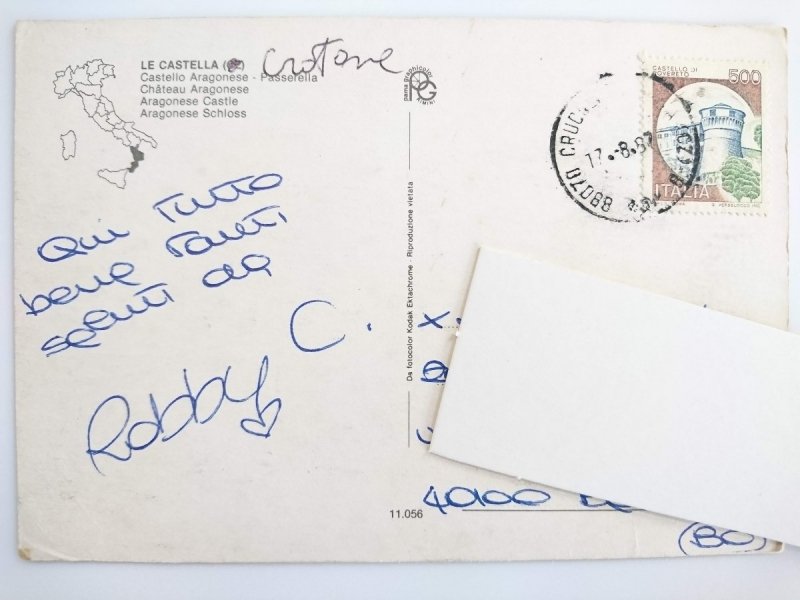 LE CASTELLA (CZ) Crotone
Castello Aragonese - Passerella
Château Aragonese
Aragonese Castle
Aragonese Schloss
Qui tutto
bene tanti
saluti da
C.
Robby
11.056
Da fotocolor Kodak Ektachrome - Riproduzione vietata
pama graphicolor
PG
RIMINI
CASTELLO DI
ROVERETO
500
ITALIA
88070 CRUC
17.-8.87
X.
40100
(BO)